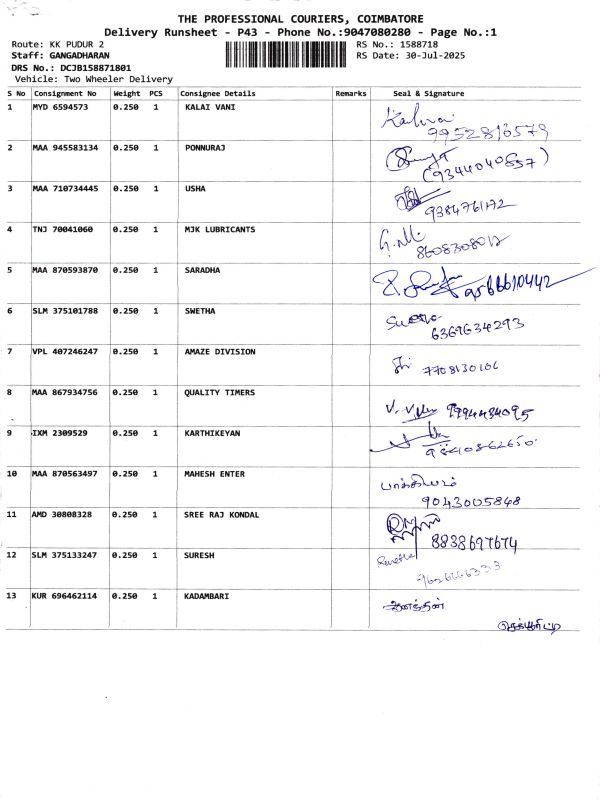 THE PROFESSIONAL COURIERS, COIMBATORE
Delivery Runsheet - P43 - Phone No.:9047080280 - Page No.:1
Route: KK PUDUR 2 RS No.: 1588718
Staff: GANGADHARAN RS Date: 30-Jul-2025
DRS No.: DCJB158871801
Vehicle: Two Wheeler Delivery
S No Consignment No Weight PCS Consignee Details Remarks Seal & Signature
1 MYD 6594573 0.250 1 KALAI VANI
9952816579
2 MAA 945583134 0.250 1 PONNURAJ
(9344040857)
3 MAA 710734445 0.250 1 USHA
9384761172
4 TNJ 70041060 0.250 1 MJK LUBRICANTS
8608308012
5 MAA 870593870 0.250 1 SARADHA
9566610442
6 SLM 375101788 0.250 1 SWETHA
6369634293
7 VPL 407246247 0.250 1 AMAZE DIVISION
7708130106
8 MAA 867934756 0.250 1 QUALITY TIMERS
9994484095
9 IXM 2309529 0.250 1 KARTHIKEYAN
10 MAA 870563497 0.250 1 MAHESH ENTER
பாக்கியம்
9043005848
11 AMD 30808328 0.250 1 SREE RAJ KONDAL
8838697674
12 SLM 375133247 0.250 1 SURESH
9626666333
13 KUR 696462114 0.250 1 KADAMBARI